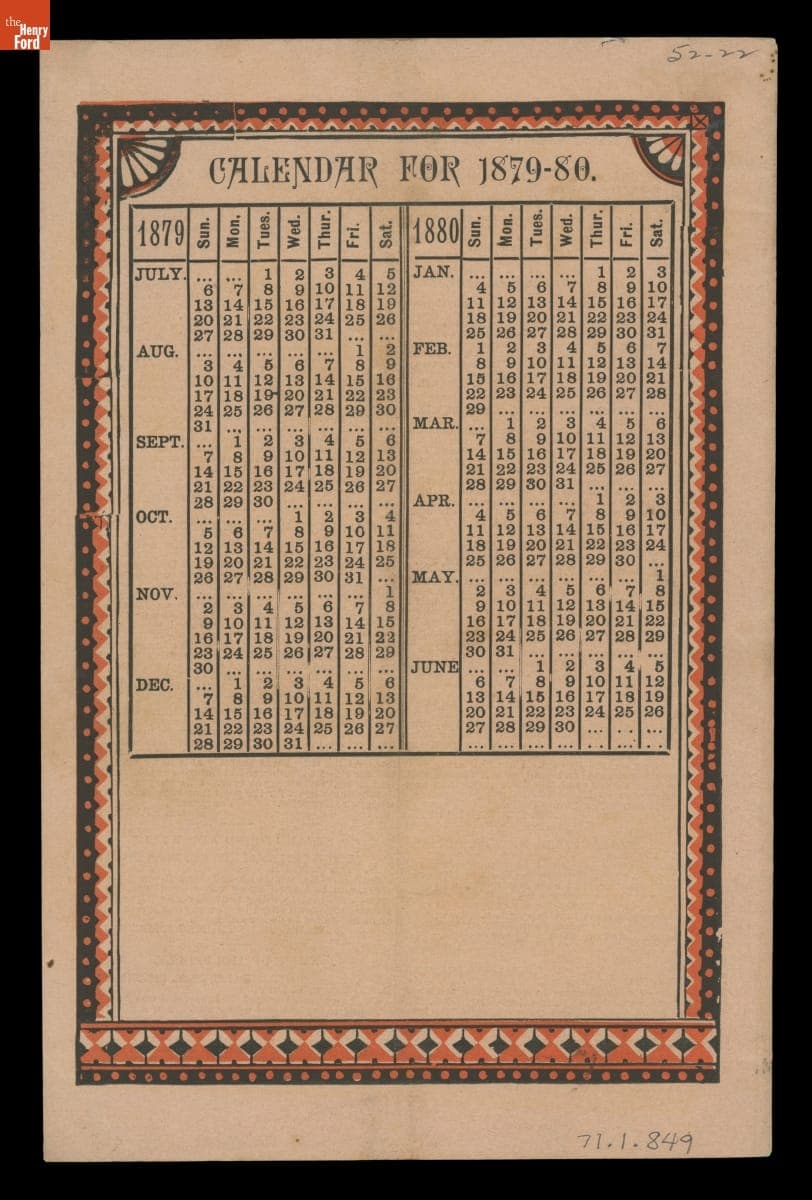 the
Henry
Ford
52-22
CALENDAR FOR 1879-80.
1879 Sun. Mon. Tues. Wed. Thur. Fri. Sat.
JULY. ... ... 1 2 3 4 5
6 7 8 9 10 11 12
13 14 15 16 17 18 19
20 21 22 23 24 25 26
27 28 29 30 31 ... ...
AUG. ... ... ... ... ... 1 2
3 4 5 6 7 8 9
10 11 12 13 14 15 16
17 18 19 20 21 22 23
24 25 26 27 28 29 30
31 ... ... ... ... ... ...
SEPT. ... 1 2 3 4 5 6
7 8 9 10 11 12 13
14 15 16 17 18 19 20
21 22 23 24 25 26 27
28 29 30 ... ... ... ...
OCT. ... ... ... 1 2 3 4
5 6 7 8 9 10 11
12 13 14 15 16 17 18
19 20 21 22 23 24 25
26 27 28 29 30 31 ...
NOV. ... ... ... ... ... ... 1
2 3 4 5 6 7 8
9 10 11 12 13 14 15
16 17 18 19 20 21 22
23 24 25 26 27 28 29
30 ... ... ... ... ... ...
DEC. ... 1 2 3 4 5 6
7 8 9 10 11 12 13
14 15 16 17 18 19 20
21 22 23 24 25 26 27
28 29 30 31 ... ... ...
1880 Sun. Mon. Tues. Wed. Thur. Fri. Sat.
JAN. ... ... ... ... 1 2 3
4 5 6 7 8 9 10
11 12 13 14 15 16 17
18 19 20 21 22 23 24
25 26 27 28 29 30 31
FEB. 1 2 3 4 5 6 7
8 9 10 11 12 13 14
15 16 17 18 19 20 21
22 23 24 25 26 27 28
29 ... ... ... ... ... ...
MAR. ... 1 2 3 4 5 6
7 8 9 10 11 12 13
14 15 16 17 18 19 20
21 22 23 24 25 26 27
28 29 30 31 ... ... ...
APR. ... ... ... ... 1 2 3
4 5 6 7 8 9 10
11 12 13 14 15 16 17
18 19 20 21 22 23 24
25 26 27 28 29 30 ...
MAY. ... ... ... ... ... ... 1
2 3 4 5 6 7 8
9 10 11 12 13 14 15
16 17 18 19 20 21 22
23 24 25 26 27 28 29
30 31 ... ... ... ... ...
JUNE ... ... 1 2 3 4 5
6 7 8 9 10 11 12
13 14 15 16 17 18 19
20 21 22 23 24 25 26
27 28 29 30 ... . . ...
... ... ... ... . . . . . .
71.1.849